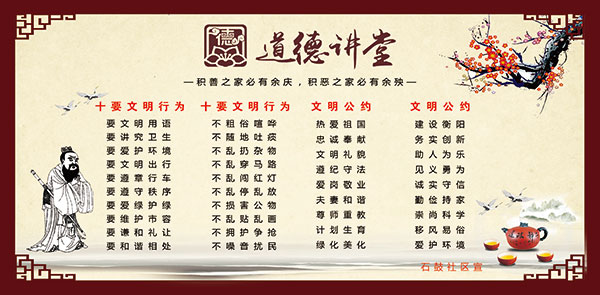 德
道德讲堂
—积善之家必有余庆，积恶之家必有余殃—
十要文明行为
要文明用语
要讲究卫生
要爱护环境
要文明出行
要遵章行车
要遵守秩序
要爱绿护绿
要维护市容
要谦和礼让
要和谐相处
十要文明行为
不粗俗喧哗
不随地吐痰
不乱扔杂物
不乱穿马路
不乱闯红灯
不乱停乱放
不损害公物
不乱贴乱画
不拥护争抢
不噪音扰民
文明公约
热爱祖国
忠诚奉献
文明礼貌
遵纪守法
爱岗敬业
夫妻和谐
尊师重教
计划生育
绿化美化
文明公约
建设衡阳
务实创新
助人为乐
见义勇为
诚实守信
勤俭持家
崇尚科学
移风易俗
爱护环境
石鼓社区宣